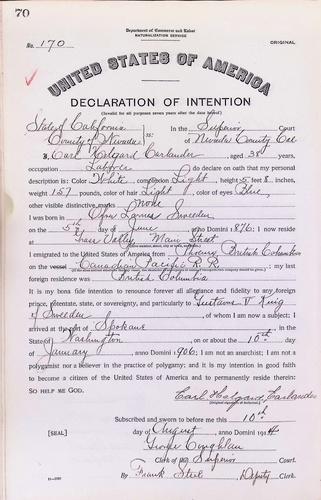 70
Department of Commerce and Labor
NATURALIZATION SERVICE
No. 170
ORIGINAL
UNITED STATES OF AMERICA
DECLARATION OF INTENTION
(Invalid for all purposes seven years after the date hereof)
State of California
County of Nevada ss: In the Superior Court of Nevada County Cal
I, Carl Holgard Carlander, aged 38 years,
occupation Laborer, do declare on oath that my personal
description is: Color White, complexion Light, height 5 feet 8 inches,
weight 157 pounds, color of hair Light, color of eyes Blue,
other visible distinctive marks None
I was born in Sweeden
on the 5th day of June, anno Domini 1876; I now reside
at Grass Valley Main Street
I emigrated to the United States of America from British Columbia
on the vessel Canadian Pacific R.R.; my last
foreign residence was British Columbia
It is my bona fide intention to renounce forever all allegiance and fidelity to any foreign
prince, potentate, state, or sovereignty, and particularly to Gustave V King
of Sweeden, of whom I am now a subject; I
arrived at the port of Spokane, in the
State of Washington, on or about the 10th day
of January, anno Domini 1906; I am not an anarchist; I am not a
polygamist nor a believer in the practice of polygamy; and it is my intention in good faith
to become a citizen of the United States of America and to permanently reside therein:
SO HELP ME GOD.
Carl Holgard Carlander
Subscribed and sworn to before me this 10th
[SEAL] day of August, anno Domini 1914
George Coughlan
Clerk of the Superior Court.
By Frank Steel, Deputy Clerk.